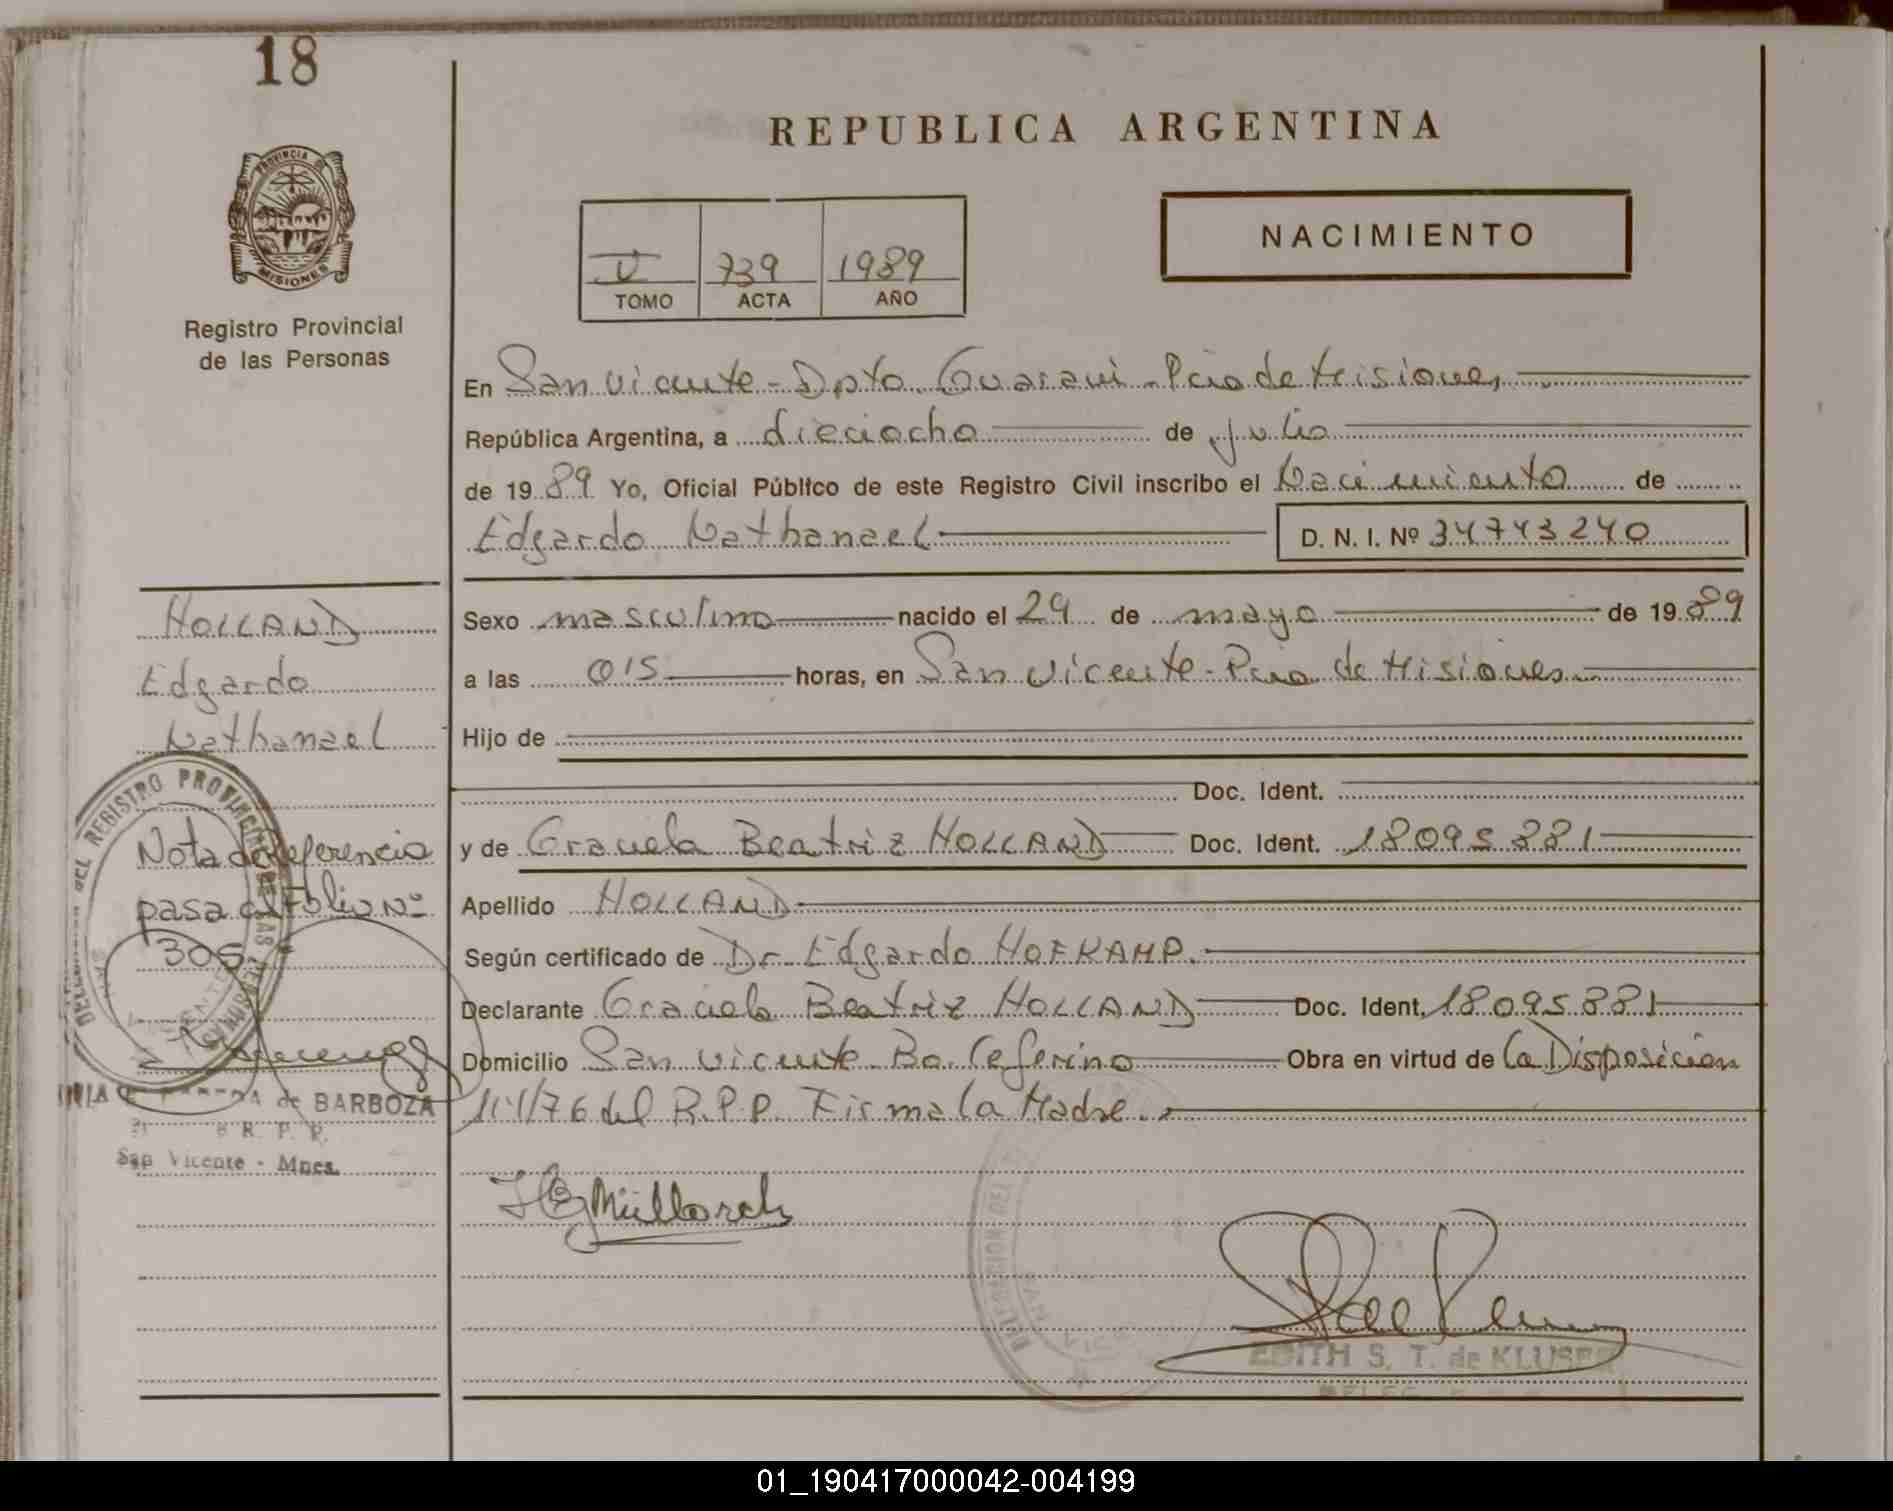 18
REPUBLICA ARGENTINA
PROVINCIA DE
MISIONES
Registro Provincial
de las Personas
NACIMIENTO
V 739 1989
TOMO ACTA AÑO
En San Vicente - Dpto. Guarani - Pcia de Misiones
República Argentina, a dieciocho de julio
de 1989 Yo, Oficial Público de este Registro Civil inscribo el Nacimiento de
Edgardo Nathanael D. N. I. Nº 34743240
HOLLAND
Edgardo
Nathanael
Sexo masculino nacido el 29 de mayo de 1989
a las 015 horas, en San Vicente - Pcia de Misiones
Hijo de
Doc. Ident.
y de Graciela Beatriz HOLLAND Doc. Ident. 18095881
Apellido HOLLAND
Según certificado de Dr. Edgardo HOFKAMP.
Declarante Graciela Beatriz HOLLAND Doc. Ident. 18095881
Domicilio San Vicente Bo. Ceferino Obra en virtud de la Disposición
11/76 del R.P.P. Firma la Madre.
Nota de Referencia
pasa al folio Nº
305
DEL REGISTRO PROVINCIAL DE LAS PERSONAS
de BARBOZA
R. P. P.
San Vicente - Mnes.
DELEGACION DEL
SAN VICENTE
EDITH S. T. de KLUSER
01_190417000042-004199